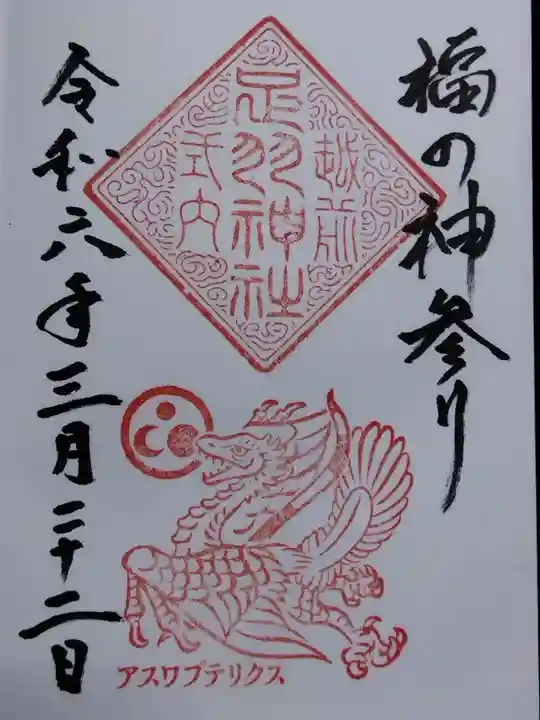 福の神参り
越前
足羽神社
式内
アスワプテリクス
令和六年三月二十二日